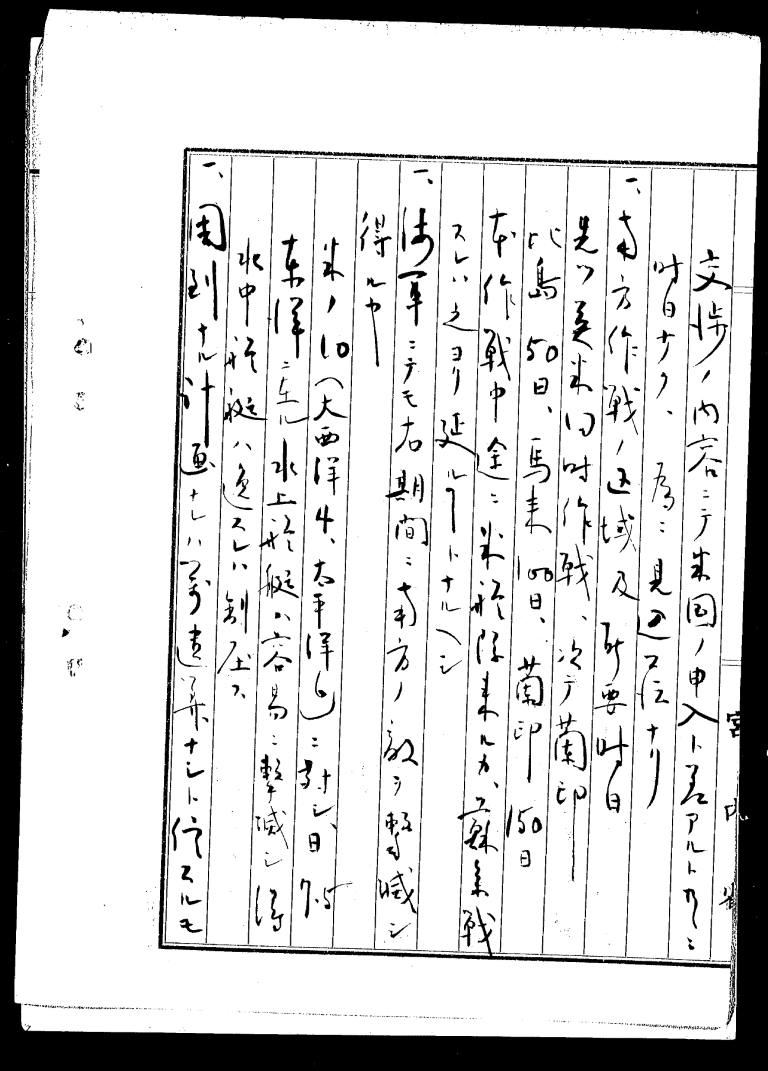 交渉ノ内容ニテ米国ノ申入ト差アルト
時日少ク、為ニ見込マズナリ
一、南方作戦ノ区域及所要時日
先ツ英米同時作戦、次テ蘭印
比島 50日、馬来 100日、蘭印 150日
本作戦中途ニ米艦隊来ルカ、蘇参戦
スレハ之ヨリ延ルコトトナルヘシ
一、海軍ニテモ右期間ニ南方ノ敵ヲ撃滅シ
得ルヤ
米ノ10(大西洋4、太平洋6)ニ対シ、日 7.5
東洋ニ在ル水上艦艇ハ容易ニ撃滅シ得
水中艦艇ハ逸スレハ制圧ス
一、周到ナル計画ナレハ万違算ナシト信スルモ
宮内省